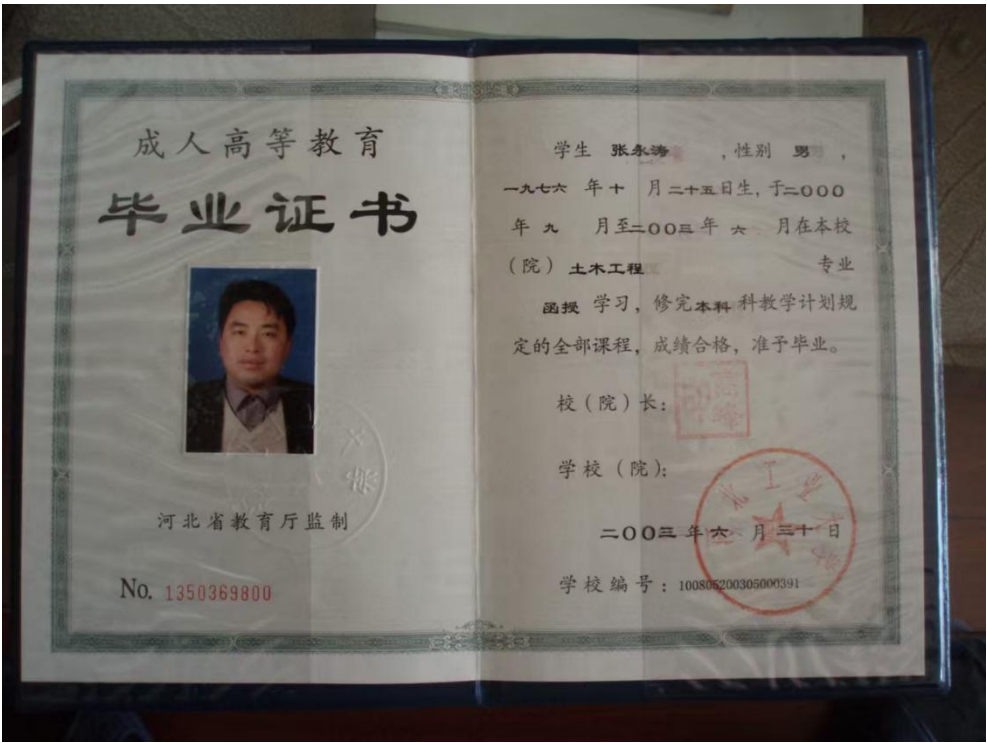 成人高等教育
毕业证书
河北省教育厅监制
No. 1350369800
学生 张永涛 ，性别 男 ，
一九七六 年 十 月 二十五 日生，于二〇〇〇
年 九 月至二〇〇三年 六 月在本校
（院） 土木工程 专业
函授 学习，修完本科 科教学计划规
定的全部课程，成绩合格，准予毕业。
校（院）长：
学校（院）：
北工业大学
二〇〇三 年 六 月 三十 日
学校编号：100805200305000391